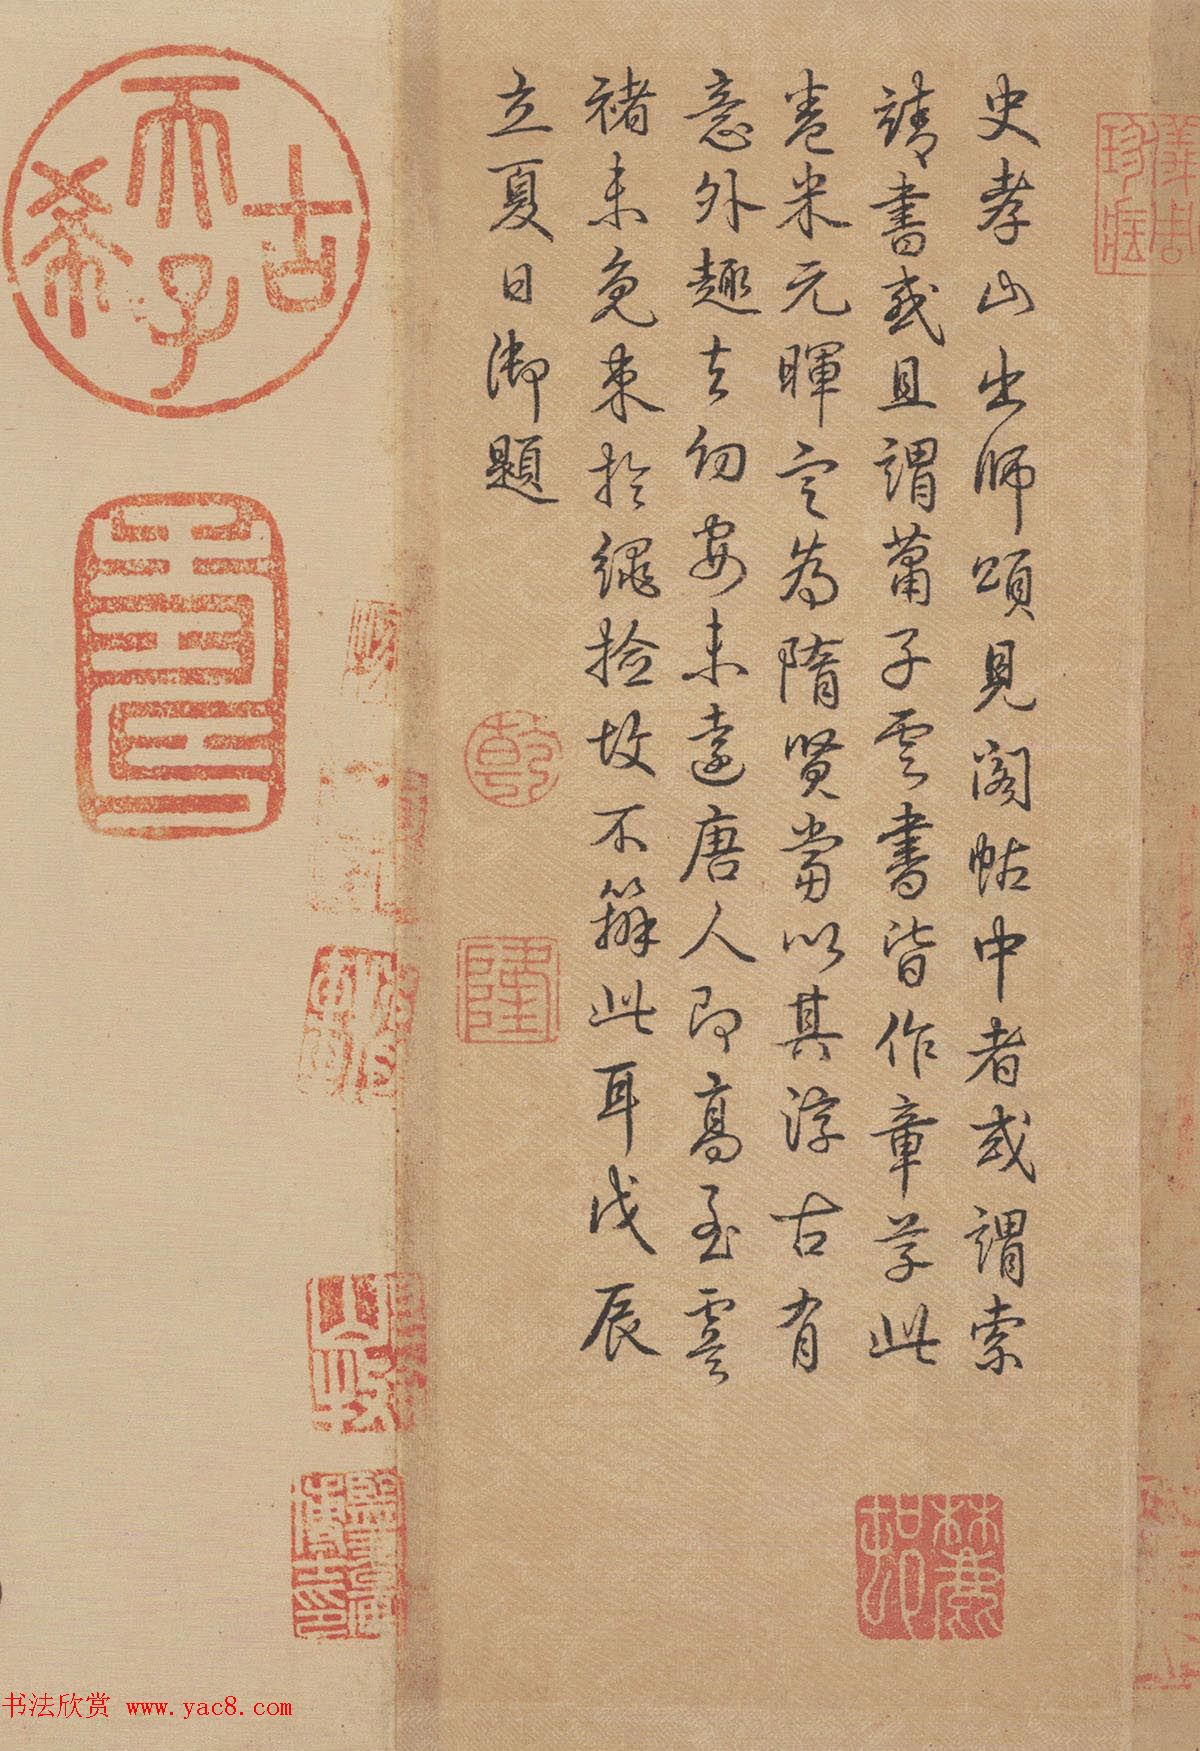 史孝山出師頌見閣帖中者或謂索
靖書或且謂蕭子雲書皆作章草此
卷米元暉定為隋賢當以其淳古有
意外趣去幼安未遠唐人即高至虞
褚未免束於繩撿故不辦此耳戊辰
立夏日御題
乾
隆
古希天子
壽
書法欣赏 www.yac8.com